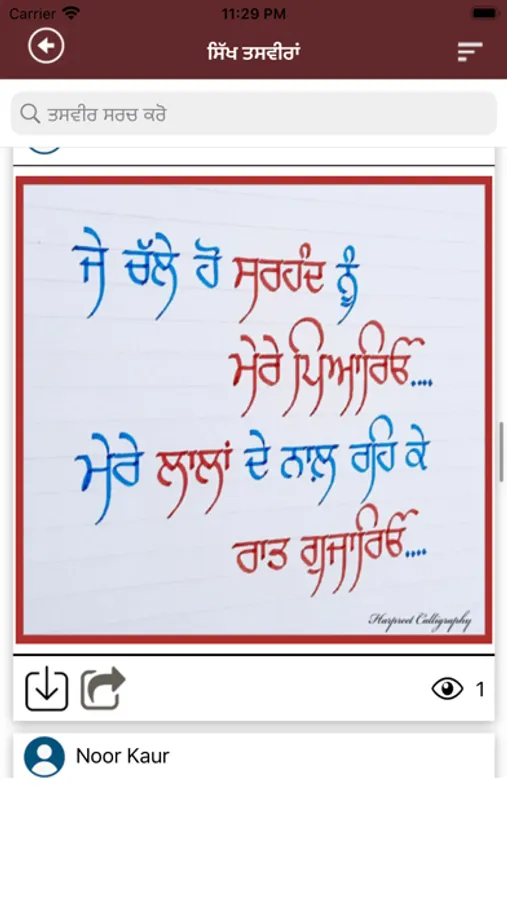 Carrier 11:29 PM
ਸਿੱਖ ਤਸਵੀਰਾਂ
ਤਸਵੀਰ ਸਰਚ ਕਰੋ
ਜੇ ਚੱਲੇ ਹੋ ਸਰਹੰਦ ਨੂੰ
ਮੇਰੇ ਪਿਆਰਿਓ....
ਮੇਰੇ ਲਾਲਾਂ ਦੇ ਨਾਲ਼ ਰਹਿ ਕੇ
ਰਾਤ ਗੁਜਾਰਿਓ....
Harpreet Calligraphy
1
Noor Kaur